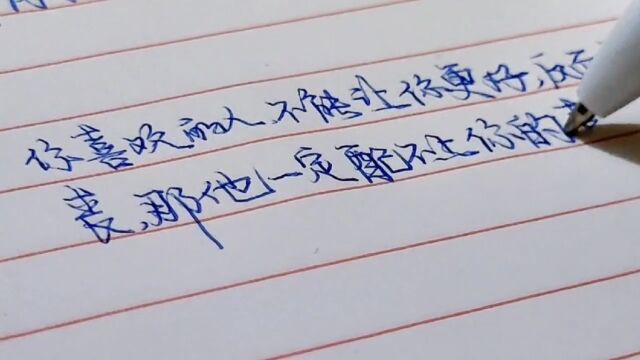 你喜欢的人,不能让你更好,反而
丧,那他一定配不上你的